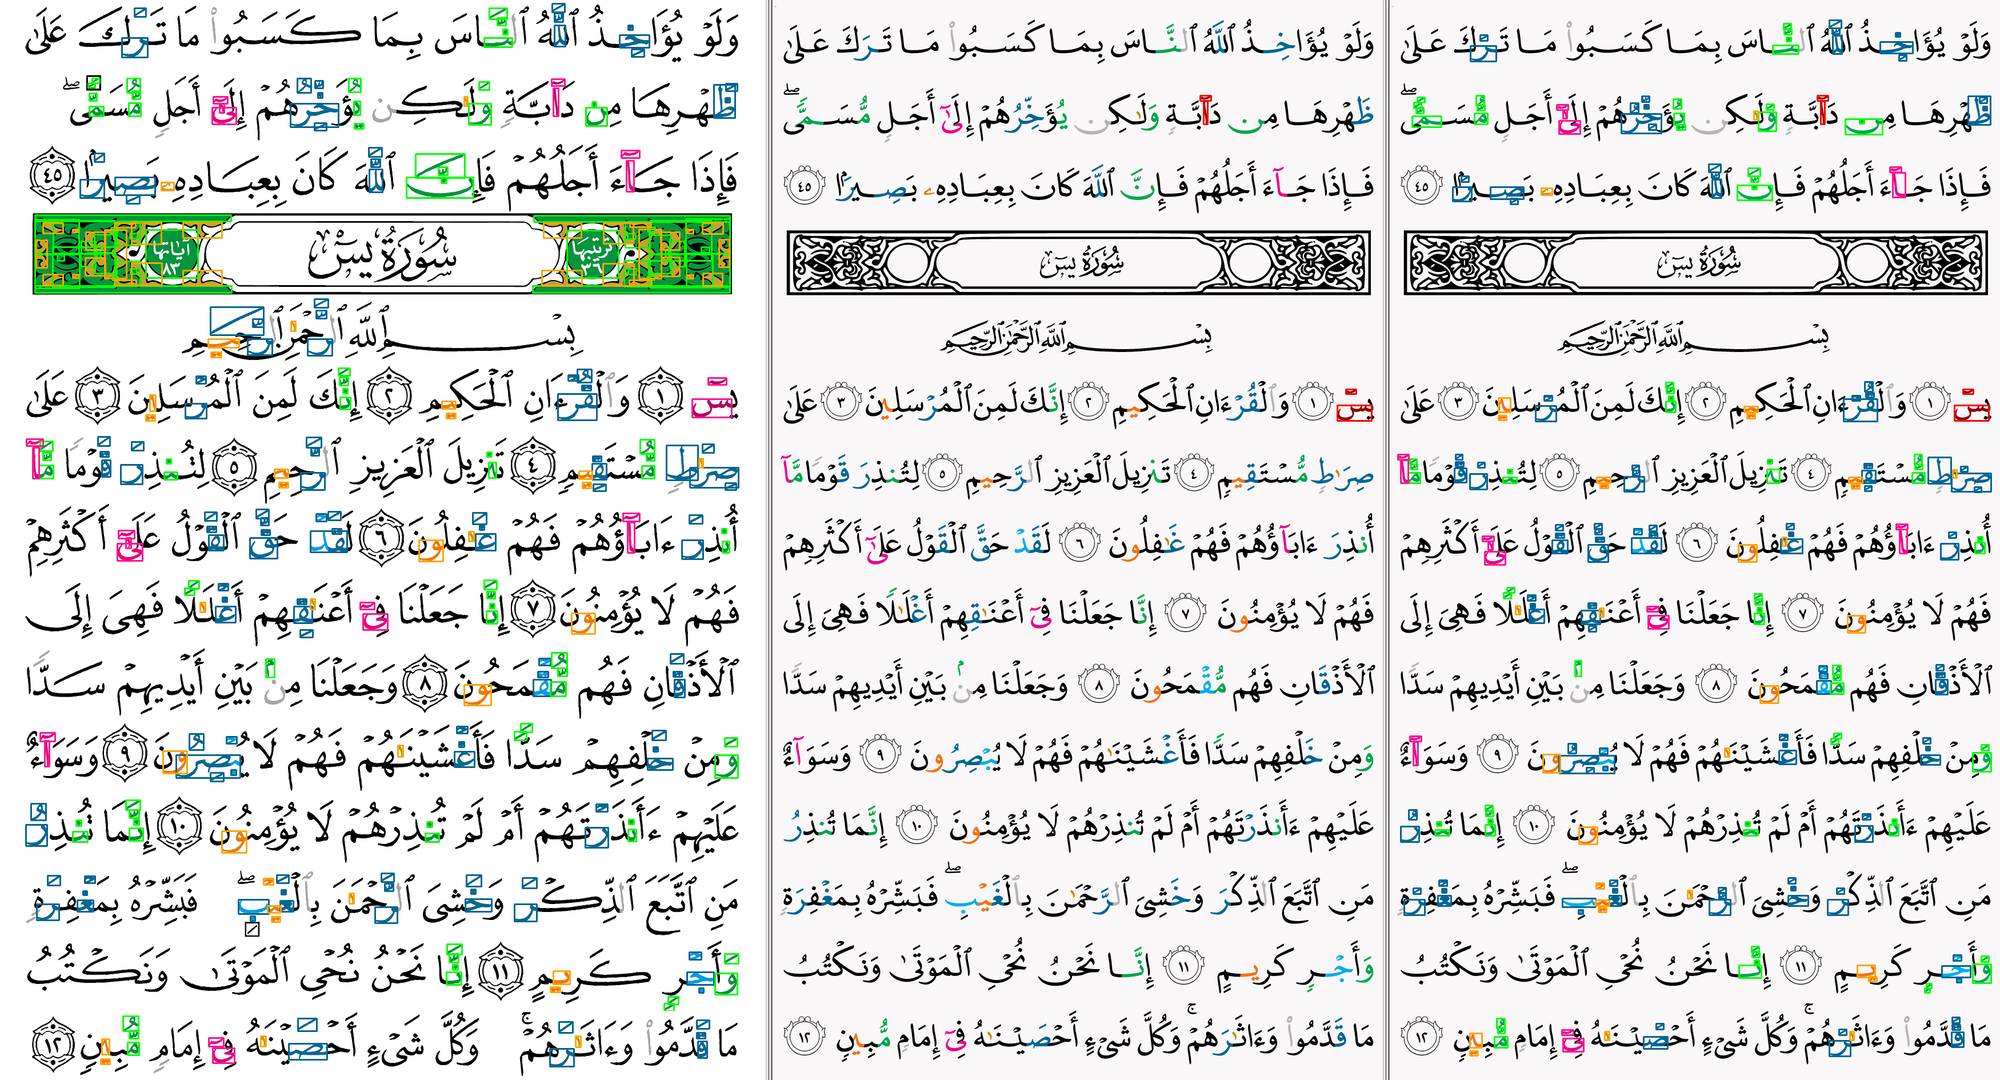 وَلَوْ يُؤَاخِذُ ٱللَّهُ ٱلنَّاسَ بِمَا كَسَبُوا۟ مَا تَرَكَ عَلَىٰ
ظَهْرِهَا مِن دَآبَّةٍ وَلَٰكِن يُؤَخِّرُهُمْ إِلَىٰٓ أَجَلٍ مُّسَمًّى ۖ
فَإِذَا جَآءَ أَجَلُهُمْ فَإِنَّ ٱللَّهَ كَانَ بِعِبَادِهِۦ بَصِيرًۢا ٤٥
ترتيبها ٣٦ سُورَةُ يسٓ آياتها ٨٣
بِسْمِ ٱللَّهِ ٱلرَّحْمَٰنِ ٱلرَّحِيمِ
يسٓ ١ وَٱلْقُرْءَانِ ٱلْحَكِيمِ ٢ إِنَّكَ لَمِنَ ٱلْمُرْسَلِينَ ٣ عَلَىٰ
صِرَٰطٍ مُّسْتَقِيمٍ ٤ تَنزِيلَ ٱلْعَزِيزِ ٱلرَّحِيمِ ٥ لِتُنذِرَ قَوْمًا مَّآ
أُنذِرَ ءَابَآؤُهُمْ فَهُمْ غَٰفِلُونَ ٦ لَقَدْ حَقَّ ٱلْقَوْلُ عَلَىٰٓ أَكْثَرِهِمْ
فَهُمْ لَا يُؤْمِنُونَ ٧ إِنَّا جَعَلْنَا فِىٓ أَعْنَٰقِهِمْ أَغْلَٰلًا فَهِىَ إِلَى
ٱلْأَذْقَانِ فَهُم مُّقْمَحُونَ ٨ وَجَعَلْنَا مِنۢ بَيْنِ أَيْدِيهِمْ سَدًّا
وَمِنْ خَلْفِهِمْ سَدًّا فَأَغْشَيْنَٰهُمْ فَهُمْ لَا يُبْصِرُونَ ٩ وَسَوَآءٌ
عَلَيْهِمْ ءَأَنذَرْتَهُمْ أَمْ لَمْ تُنذِرْهُمْ لَا يُؤْمِنُونَ ١٠ إِنَّمَا تُنذِرُ
مَنِ ٱتَّبَعَ ٱلذِّكْرَ وَخَشِىَ ٱلرَّحْمَٰنَ بِٱلْغَيْبِ ۖ فَبَشِّرْهُ بِمَغْفِرَةٍ
وَأَجْرٍ كَرِيمٍ ١١ إِنَّا نَحْنُ نُحْىِ ٱلْمَوْتَىٰ وَنَكْتُبُ
مَا قَدَّمُوا۟ وَءَاثَٰرَهُمْ ۚ وَكُلَّ شَىْءٍ أَحْصَيْنَٰهُ فِىٓ إِمَامٍ مُّبِينٍ ١٢
وَلَوْ يُؤَاخِذُ ٱللَّهُ ٱلنَّاسَ بِمَا كَسَبُوا۟ مَا تَرَكَ عَلَىٰ
ظَهْرِهَا مِن دَآبَّةٍ وَلَٰكِن يُؤَخِّرُهُمْ إِلَىٰٓ أَجَلٍ مُّسَمًّى ۖ
فَإِذَا جَآءَ أَجَلُهُمْ فَإِنَّ ٱللَّهَ كَانَ بِعِبَادِهِۦ بَصِيرًۢا ٤٥
سُورَةُ يسٓ
بِسْمِ ٱللَّهِ ٱلرَّحْمَٰنِ ٱلرَّحِيمِ
يسٓ ١ وَٱلْقُرْءَانِ ٱلْحَكِيمِ ٢ إِنَّكَ لَمِنَ ٱلْمُرْسَلِينَ ٣ عَلَىٰ
صِرَٰطٍ مُّسْتَقِيمٍ ٤ تَنزِيلَ ٱلْعَزِيزِ ٱلرَّحِيمِ ٥ لِتُنذِرَ قَوْمًا مَّآ
أُنذِرَ ءَابَآؤُهُمْ فَهُمْ غَٰفِلُونَ ٦ لَقَدْ حَقَّ ٱلْقَوْلُ عَلَىٰٓ أَكْثَرِهِمْ
فَهُمْ لَا يُؤْمِنُونَ ٧ إِنَّا جَعَلْنَا فِىٓ أَعْنَٰقِهِمْ أَغْلَٰلًا فَهِىَ إِلَى
ٱلْأَذْقَانِ فَهُم مُّقْمَحُونَ ٨ وَجَعَلْنَا مِنۢ بَيْنِ أَيْدِيهِمْ سَدًّا
وَمِنْ خَلْفِهِمْ سَدًّا فَأَغْشَيْنَٰهُمْ فَهُمْ لَا يُبْصِرُونَ ٩ وَسَوَآءٌ
عَلَيْهِمْ ءَأَنذَرْتَهُمْ أَمْ لَمْ تُنذِرْهُمْ لَا يُؤْمِنُونَ ١٠ إِنَّمَا تُنذِرُ
مَنِ ٱتَّبَعَ ٱلذِّكْرَ وَخَشِىَ ٱلرَّحْمَٰنَ بِٱلْغَيْبِ ۖ فَبَشِّرْهُ بِمَغْفِرَةٍ
وَأَجْرٍ كَرِيمٍ ١١ إِنَّا نَحْنُ نُحْىِ ٱلْمَوْتَىٰ وَنَكْتُبُ
مَا قَدَّمُوا۟ وَءَاثَٰرَهُمْ ۚ وَكُلَّ شَىْءٍ أَحْصَيْنَٰهُ فِىٓ إِمَامٍ مُّبِينٍ ١٢
وَلَوْ يُؤَاخِذُ ٱللَّهُ ٱلنَّاسَ بِمَا كَسَبُوا۟ مَا تَرَكَ عَلَىٰ
ظَهْرِهَا مِن دَآبَّةٍ وَلَٰكِن يُؤَخِّرُهُمْ إِلَىٰٓ أَجَلٍ مُّسَمًّى ۖ
فَإِذَا جَآءَ أَجَلُهُمْ فَإِنَّ ٱللَّهَ كَانَ بِعِبَادِهِۦ بَصِيرًۢا ٤٥
سُورَةُ يسٓ
بِسْمِ ٱللَّهِ ٱلرَّحْمَٰنِ ٱلرَّحِيمِ
يسٓ ١ وَٱلْقُرْءَانِ ٱلْحَكِيمِ ٢ إِنَّكَ لَمِنَ ٱلْمُرْسَلِينَ ٣ عَلَىٰ
صِرَٰطٍ مُّسْتَقِيمٍ ٤ تَنزِيلَ ٱلْعَزِيزِ ٱلرَّحِيمِ ٥ لِتُنذِرَ قَوْمًا مَّآ
أُنذِرَ ءَابَآؤُهُمْ فَهُمْ غَٰفِلُونَ ٦ لَقَدْ حَقَّ ٱلْقَوْلُ عَلَىٰٓ أَكْثَرِهِمْ
فَهُمْ لَا يُؤْمِنُونَ ٧ إِنَّا جَعَلْنَا فِىٓ أَعْنَٰقِهِمْ أَغْلَٰلًا فَهِىَ إِلَى
ٱلْأَذْقَانِ فَهُم مُّقْمَحُونَ ٨ وَجَعَلْنَا مِنۢ بَيْنِ أَيْدِيهِمْ سَدًّا
وَمِنْ خَلْفِهِمْ سَدًّا فَأَغْشَيْنَٰهُمْ فَهُمْ لَا يُبْصِرُونَ ٩ وَسَوَآءٌ
عَلَيْهِمْ ءَأَنذَرْتَهُمْ أَمْ لَمْ تُنذِرْهُمْ لَا يُؤْمِنُونَ ١٠ إِنَّمَا تُنذِرُ
مَنِ ٱتَّبَعَ ٱلذِّكْرَ وَخَشِىَ ٱلرَّحْمَٰنَ بِٱلْغَيْبِ ۖ فَبَشِّرْهُ بِمَغْفِرَةٍ
وَأَجْرٍ كَرِيمٍ ١١ إِنَّا نَحْنُ نُحْىِ ٱلْمَوْتَىٰ وَنَكْتُبُ
مَا قَدَّمُوا۟ وَءَاثَٰرَهُمْ ۚ وَكُلَّ شَىْءٍ أَحْصَيْنَٰهُ فِىٓ إِمَامٍ مُّبِينٍ ١٢